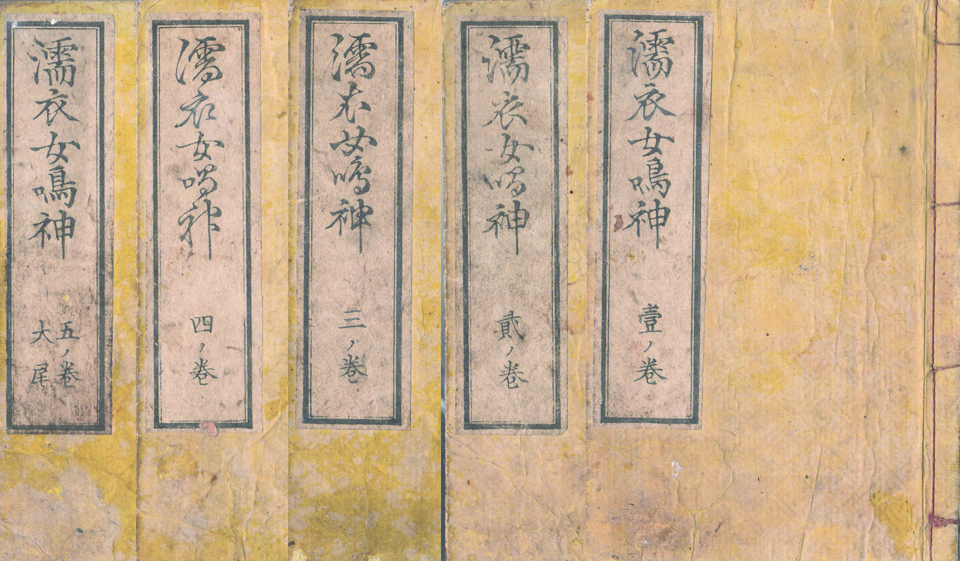 濡衣女鳴神
壹ノ巻
濡衣女鳴神
貳ノ巻
濡衣女鳴神
三ノ巻
濡衣女鳴神
四ノ巻
濡衣女鳴神
五ノ巻
大尾